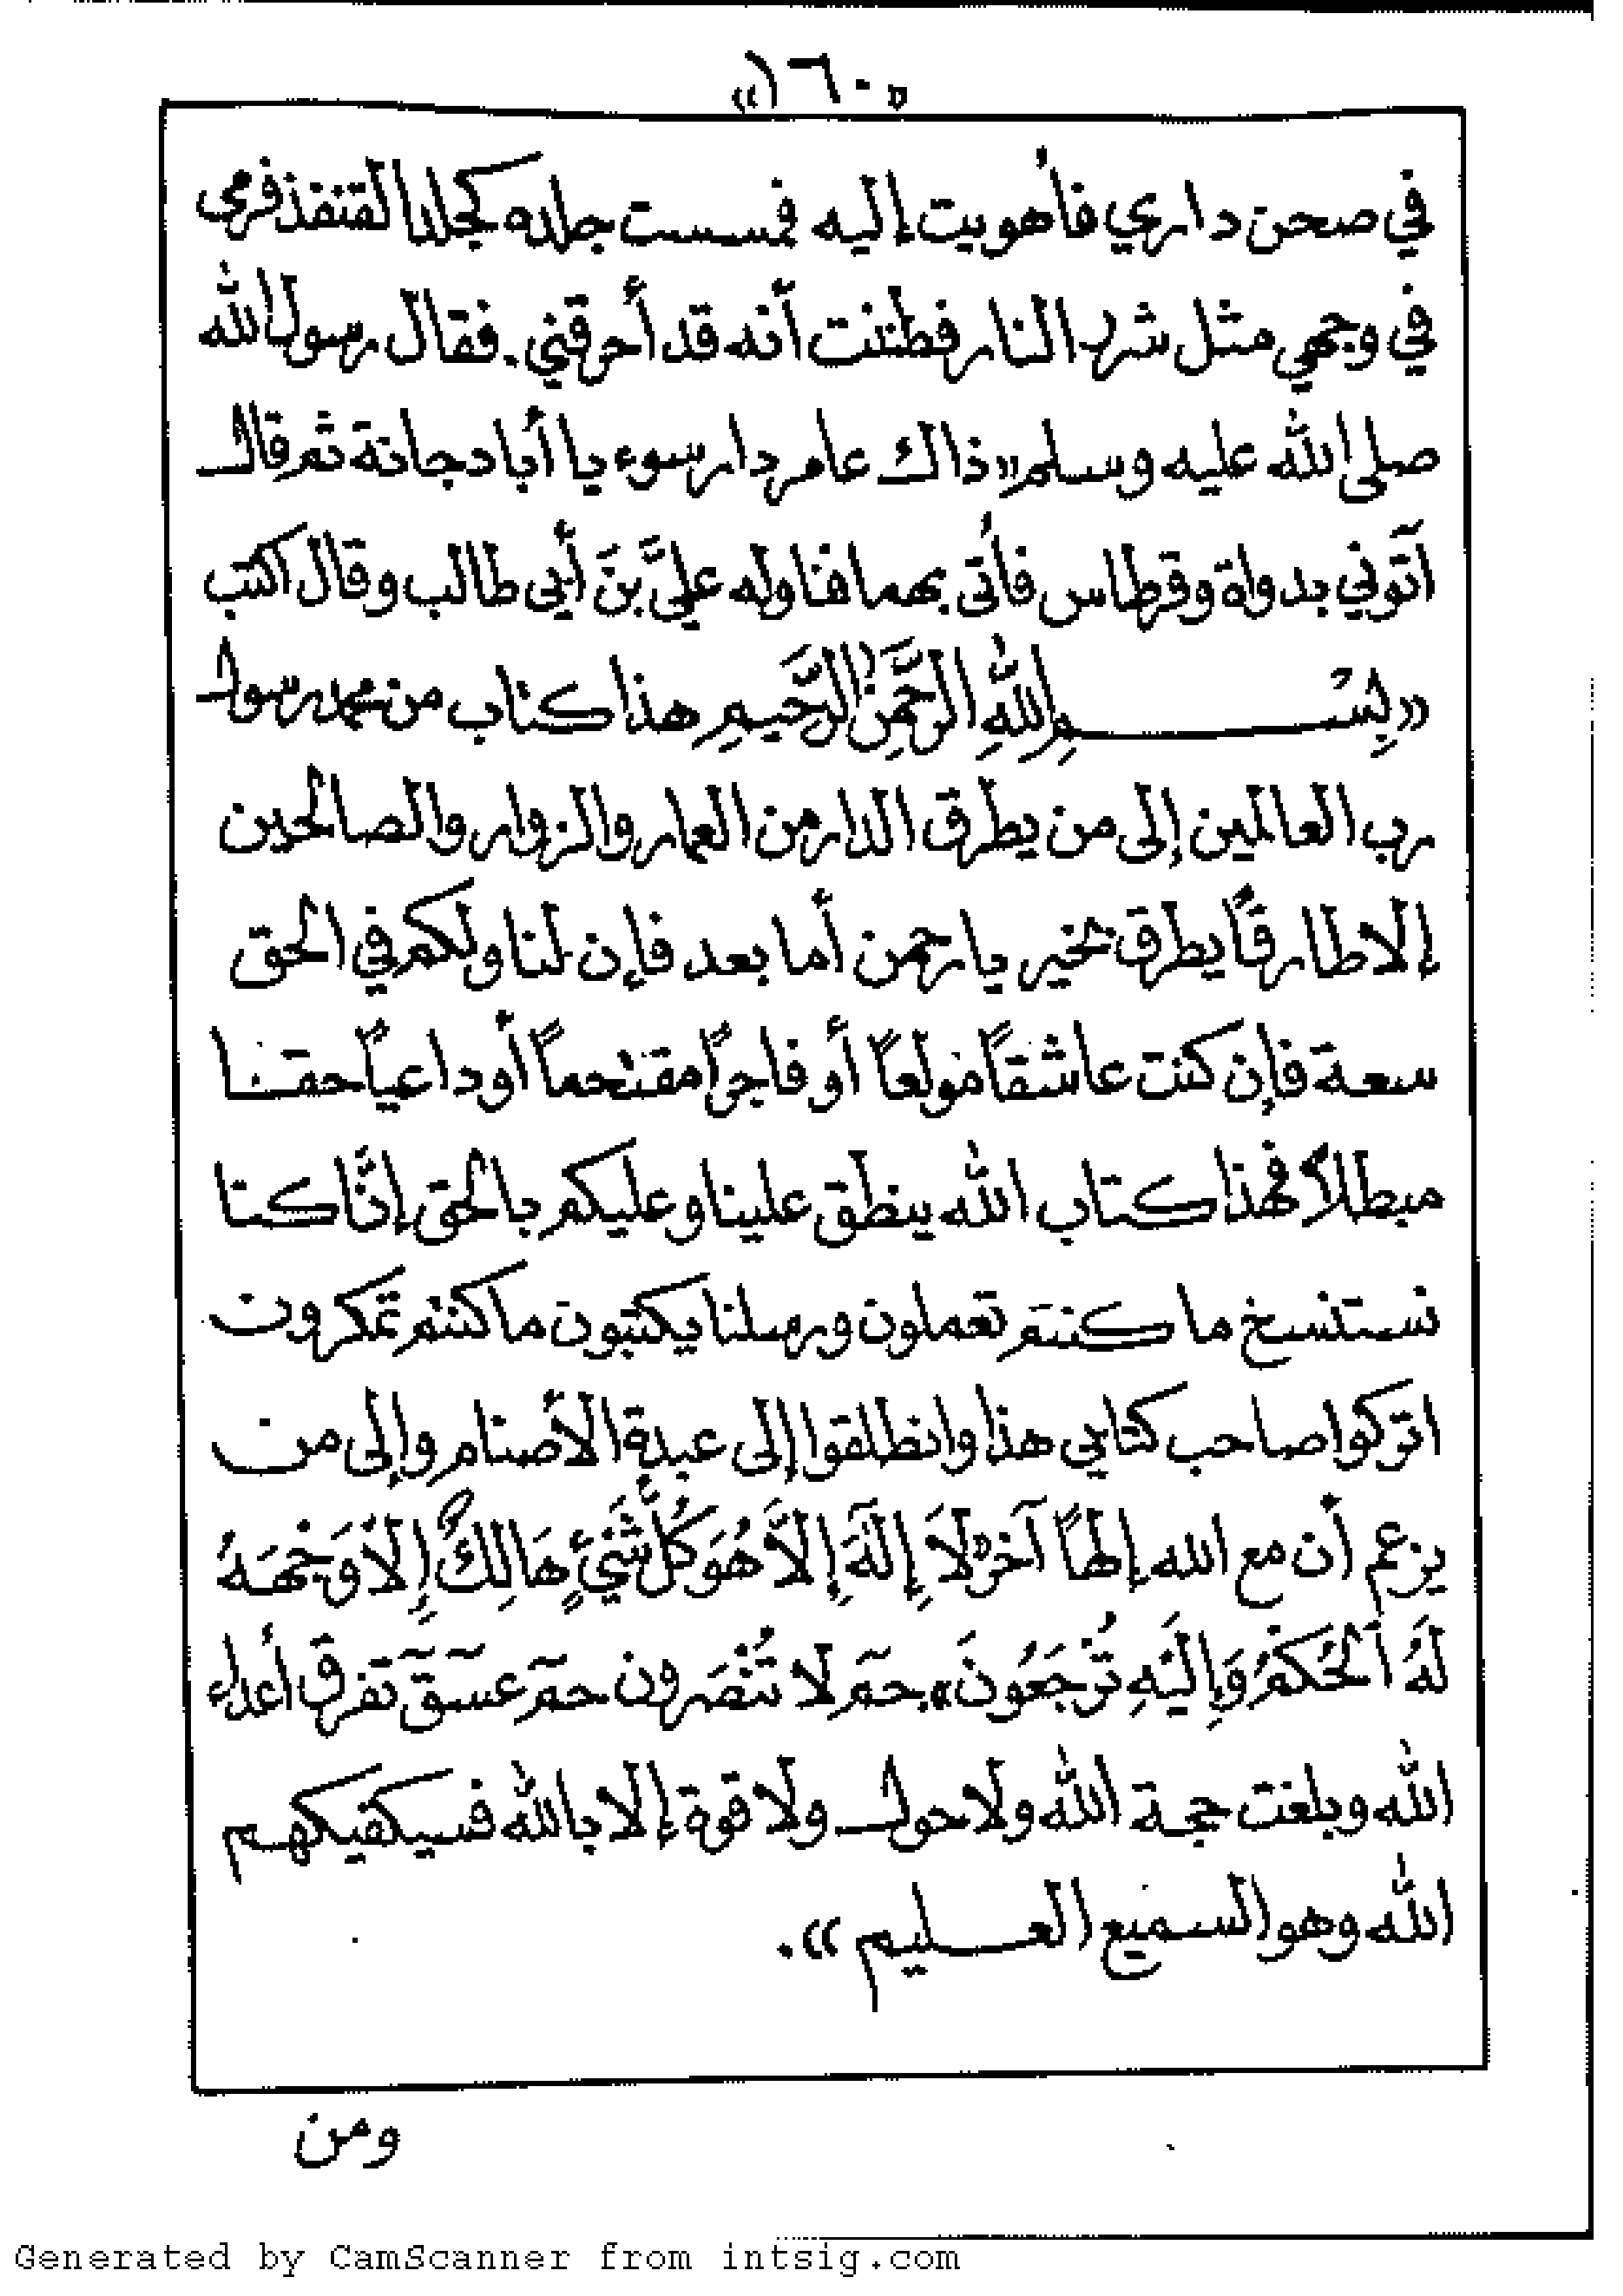 «١٦٠»
في صحن داري فأهويت إليه فمسست جلده كجلد القنفذ فرمى
في وجهي مثل شرر النار فظننت أنه قد أحرقني. فقال رسول الله
صلى الله عليه وسلم «ذاك عامر دار سوء يا أبا دجانة ثم قال
آتوني بدواة وقرطاس فأتى بهما فناوله عليَّ بنَ أبي طالب وقال اكتب
«بِسْمِ اللهِ الرَّحْمٰنِ الرَّحِيمِ هذا كتاب من محمد رسول
رب العالمين إلى من يطرق الدار من العمار والزوار والصالحين
إلا طارقًا يطرق بخير يا رحمن أما بعد فإن لنا ولكم في الحق
سعة فإن كنت عاشقاً مولعاً أو فاجراً مقتحماً أو داعياً حقنا
مبطلاً فهذا كتاب الله ينطق علينا وعليكم بالحق إنَّا كنا
نستنسخ ما كنتم تعملون ورسلنا يكتبون ما كنتم تمكرون
اتركوا صاحب كتابي هذا وانطلقوا إلى عبدة الأصنام وإلى من
يزعم أن مع الله إلهاً آخر «لَا إِلَهَ إِلَّا هُوَ كُلُّ شَيْءٍ هَالِكٌ إِلَّا وَجْهَهُ
لَهُ الْحُكْمُ وَإِلَيْهِ تُرْجَعُونَ» حمٓ لا تُنْصَرون حمٓ عٓسٓقٓ تفرق أعداء
الله وبلغت حجة الله ولا حول ولا قوة إلا بالله فسيكفيكهم
الله وهو السميع العليم».
ومن
Generated by CamScanner from intsig.com